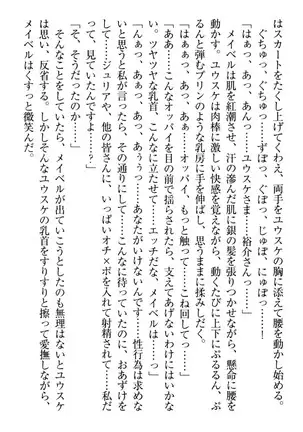 はスカートをたくし上げてくわえ、両手をユウスケの胸に添えて腰を動かし始める。
ぐちゅっ、ぐちゅっ……ずぼっ、ぐぼっ、じゅぼ、にゅぼっ……！
「あぁっ、あっ、んっ、あっ……ユウスケさま……裕介さんっ……！」
メイベルは肌を紅潮させ、汗の滲んだ肌に銀の髪を張りつかせながら、懸命に腰を
動かす。ユウスケは肉棒に激しい快感を覚えながら、動くたびに上下にぷるるん、ぷ
るるんと弾むプリンのような乳房に手を伸ばし、思うままに揉みしだく。
「はぁぁっ、あっ、あぁんっ……オッパイ、もっと触って……こね回してっ……！」
「ああ……こんなオッパイを目の前で揺らされたら、支えてあげないわけにはいかな
い。ツヤツヤな乳首、こんなに立たせて……エッチだな、メイベルは……」
「はぁっ、あっ、あっ、あぅぅっ……あなたがいけないんです……性行為は求めな
いと思うと私が言ったら、その通りにして……こんなに待っていたのに、おあずけを
して……ジュリアや、他の皆さんに、いっぱいオチ×ポを入れて射精されて……私だ
って、見ていたんですよ……」
「そ、そうだったのか……」
そんなことをしていたら、メイベルが出ていこうとしたのも無理はないとユウスケ
は思い、反省する。しかしそんなユウスケの乳首をすりすりと擦って愛撫しながら、
メイベルはくすっと微笑んだ。